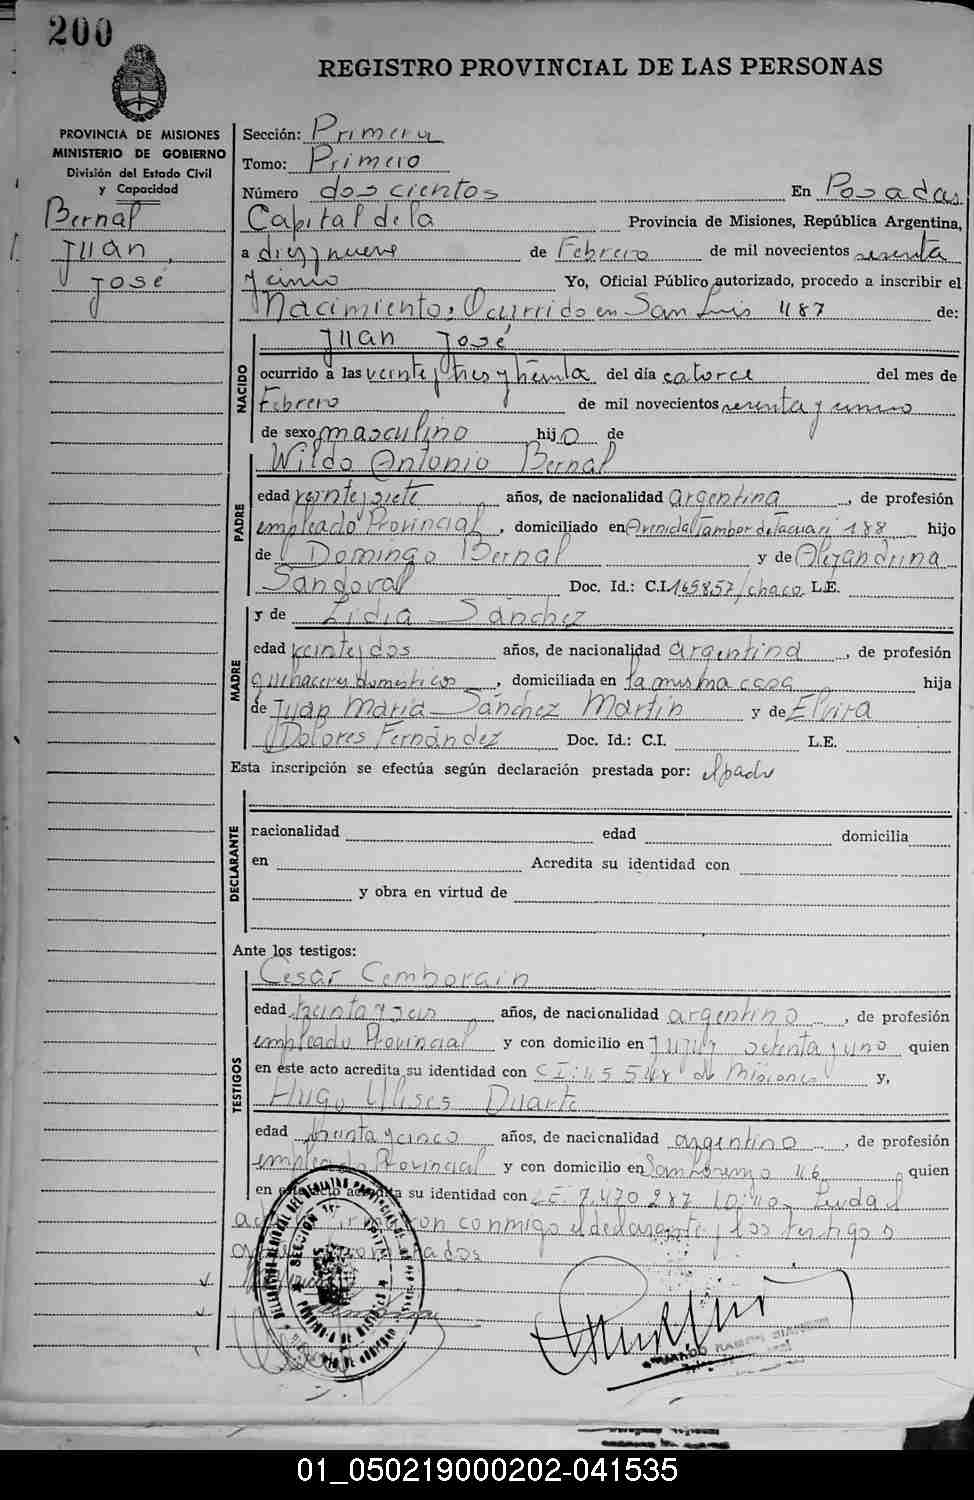 200
REGISTRO PROVINCIAL DE LAS PERSONAS
PROVINCIA DE MISIONES
MINISTERIO DE GOBIERNO
División del Estado Civil
y Capacidad
Bernal
Juan
José
Sección: Primera
Tomo: Primero
Número doscientos En Posadas
Capital de la Provincia de Misiones, República Argentina,
a diez y nueve de Febrero de mil novecientos sesenta
y cinco Yo, Oficial Público autorizado, procedo a inscribir el
Nacimiento: Ocurrido en San Luis 487 de:
NACIDO
Juan José
ocurrido a las veinte y tres y treinta del día catorce del mes de
Febrero de mil novecientos sesenta y cinco
de sexo masculino hijo de
PADRE
Wildo Antonio Bernal
edad veinte y siete años, de nacionalidad argentina, de profesión
empleado Provincial, domiciliado en Avenida Tambor de Tacuari 188 hijo
de Domingo Bernal y de Alejandrina
Sandoval Doc. Id.: C.I. 169857/chaco L.E.
MADRE
y de Lidia Sánchez
edad veinte y dos años, de nacionalidad argentina, de profesión
quehaceres domesticos, domiciliada en la misma casa hija
de Juan María Sánchez Martín y de Elvira
Dolores Fernández Doc. Id.: C.I. L.E.
Esta inscripción se efectúa según declaración prestada por: el padre
DECLARANTE
nacionalidad edad domicilia
en Acredita su identidad con
y obra en virtud de
Ante los testigos:
TESTIGOS
Cesar Cemborain
edad treinta y seis años, de nacionalidad argentino, de profesión
empleado Provincial y con domicilio en Jujuy setenta y uno quien
en este acto acredita su identidad con C I: 45 548 de Misiones y,
Hugo Ulises Duarte
edad treinta y cinco años, de nacionalidad argentino, de profesión
empleado Provincial y con domicilio en San Lorenzo 46 quien
en este acto acredita su identidad con L.E. 7.470.287 Leida el
acta firmaron conmigo el declarante y los testigos
01_050219000202-041535